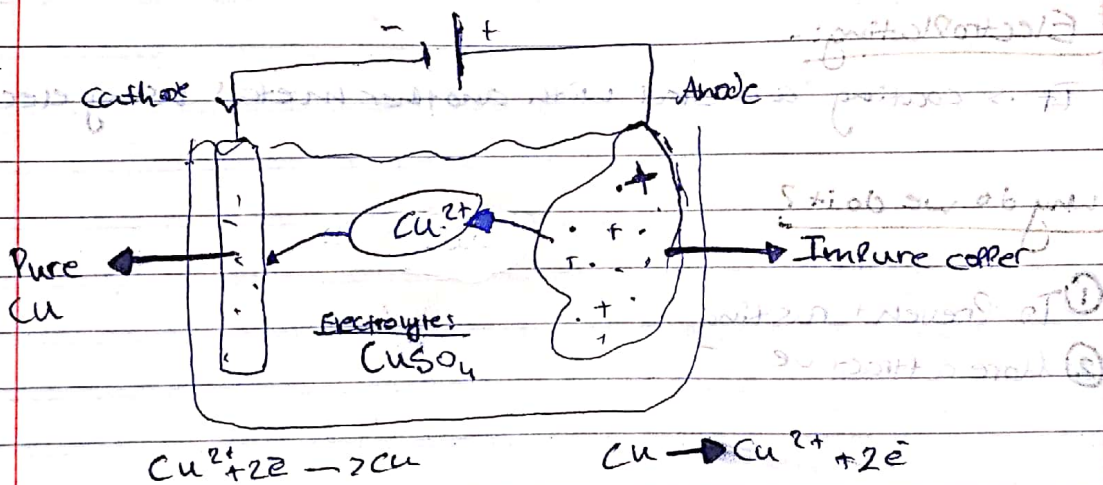 - +
Cathode Anode
Cu²⁺
Pure
Cu
Impure copper
Electrolytes
CuSO₄
Cu²⁺+2e̅ → Cu
Cu → Cu²⁺ +2e̅